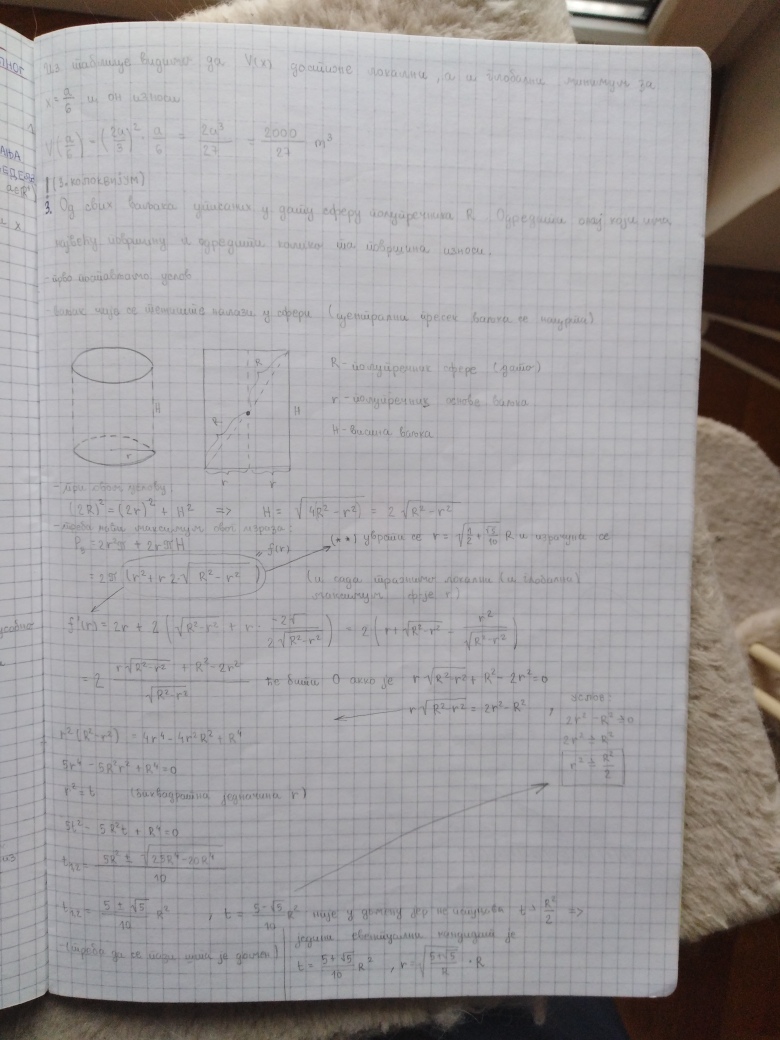 Из таблице видимо да V(x) достиже локални, а и глобални минимум за
x = a/6 и он износи
V(a/6) = (2a/3)² · a/6 = 2a³/27 = 2000/27 m³
(3. колоквијум)
3. Од свих ваљака уписаних у дату сферу полупречника R. Одредити онај који има
највећу површину и одредити колико та површина износи.
- прво поставимо услов
ваљак чије се тежиште налази у сфери (централни пресек ваљка се нацрта)
R
R - полупречник сфере (дато)
H
H
r - полупречник основе ваљка
R
H - висина ваљка
r
r r
- При овом услову:
(2R)² = (2r)² + H² => H = √(4R² - r²) = 2√(R² - r²)
- треба наћи максимум овог израза:
P = 2r²π + 2rπH
" f(r)
(**) убаци се r = √(1/2 + √5/10) R и израчуна се
= 2π (r² + r 2·√(R² - r²))
(и сада тражимо локални (и глобални)
максимум фје r)
f'(r) = 2r + 2 (√(R² - r²) + r · -2r/(2√(R² - r²))) = 2 (r + √(R² - r²) - r²/√(R² - r²))
= 2 (r√(R² - r²) + R² - 2r²)/√(R² - r²) ће бити 0 акко је r√(R² - r²) + R² - 2r² = 0
r√(R² - r²) = 2r² - R² ,
услов:
2r² - R² ≥ 0
2r² ≥ R²
r² ≥ R²/2
r²(R² - r²) = 4r⁴ - 4r²R² + R⁴
5r⁴ - 5R²r² + R⁴ = 0
r² = t (биквадратна једначина r)
5t² - 5R²t + R⁴ = 0
t₁,₂ = (5R² ± √(25R⁴ - 20R⁴))/10
t₁,₂ = (5 ± √5)/10 R² , t = (5 - √5)/10 R² није у домену јер не испуњава t ≥ R²/2 =>
једини евентуални кандидат је
- (треба да се види који је домен)
t = (5 + √5)/10 R² , r = √((5 + √5)/R) · R